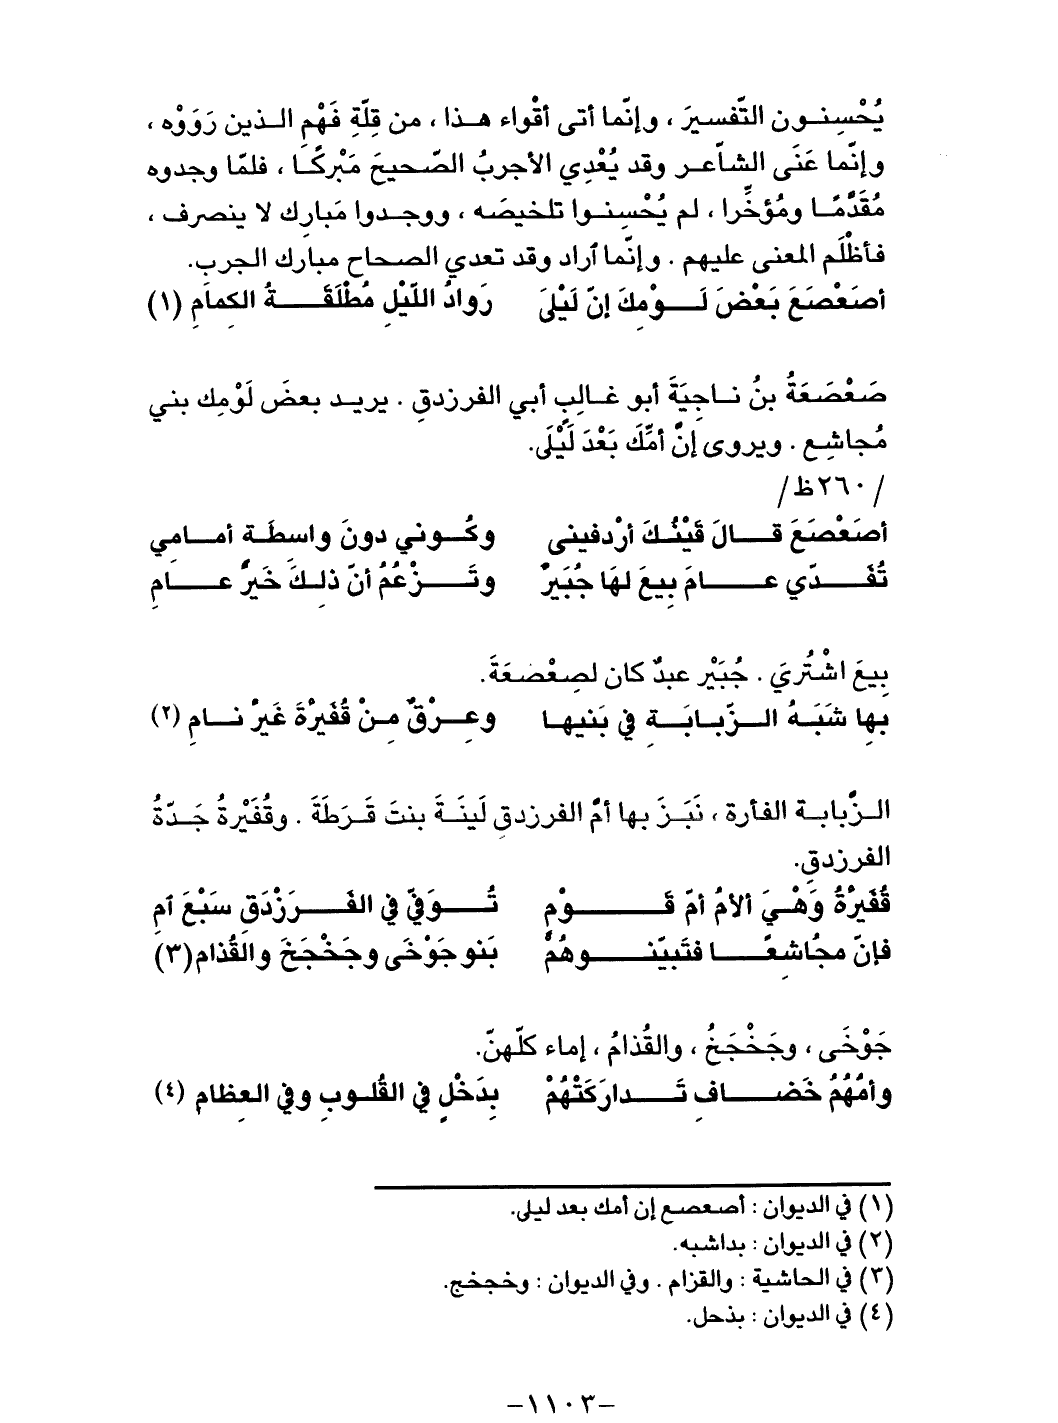 يُحْسِنون التَّفسيرَ ، وإنّما أتى أقْواء هذا ، من قِلّةِ فَهْمِ الذين رَوَوْه ،
وإنّما عَنَى الشاّعر وقد يُعْدِي الأجربُ الصّحيحَ مَبْركًا ، فلمّا وجدوه
مُقَدَّمًا ومُؤخَّرا ، لم يُحْسِنوا تلخيصَه ، ووجدوا مَبارِك لا ينصرف ،
فأظْلَم المعنى عليهم . وإنّما أراد وقد تعدي الصحاح مبارك الجرب.
أصَعْصَعَ بَعْضَ لَوْمِكَ إنّ لَيْلَىَ رَوادُ اللّيْلِ مُطْلَقَةُ الكِمامِ (١)
صَعْصَعَةُ بنُ ناجِيَةَ أبو غالبٍ أبي الفرزدقِ . يريد بعضَ لَوْمِك بني
مُجاشِع . ويروى إنَّ أمَّكَ بَعْدَ لَيْلَى.
/ ٢٦٠ظ/
أصَعْصَعَ قالَ قَيْنُكَ أرْدفيني وكُوني دونَ واسِطَة أمامِي
تُفَدّي عامَ بِيعَ لهَا جُبَيرٌ وتَزْعُمُ أنّ ذلِكَ خَيرُ عامِ
بِيعَ اشْتُريَ . جُبَيْر عبدٌ كان لصِعْصَعَةَ.
بهِا شَبَهُ الزّبابَةِ في بَنيها وعِرْقٌ مِنْ قُفَيرْةَ غَيرُ نامِ (٢)
الزَّبابة الفأرة ، نَبَزَ بها أمَّ الفرزدقِ لَينَةَ بنتَ قَرَظَةَ . وقُفَيْرةُ جَدّةُ
الفرزدقِ.
قُفَيرْةُ وَهْيَ ألأمُ أمّ قَوْمٍ تُوَفيّ في الفَرَزْدَقِ سَبْعَ آمِ
فإنّ مجُاشِعًا فتَبيّنوهُمْ بَنو جَوْخَى وجَخْجَخَ والقُذام(٣)
جَوْخَى ، وجَخْجَخُ ، والقُذامُ ، إماء كلّهنّ.
وأمُهُمُ خَضافِ تَدارَكَتْهُمْ بِدَخْلٍ في القُلوبِ وفي العِظام (٤)
(١) في الديوان : أصعصع إن أمك بعد ليلى.
(٢) في الديوان : بداشبه.
(٣) في الحاشية : والقزام . وفي الديوان : وخجخج.
(٤) في الديوان : بذحل.
-١١٠٣-